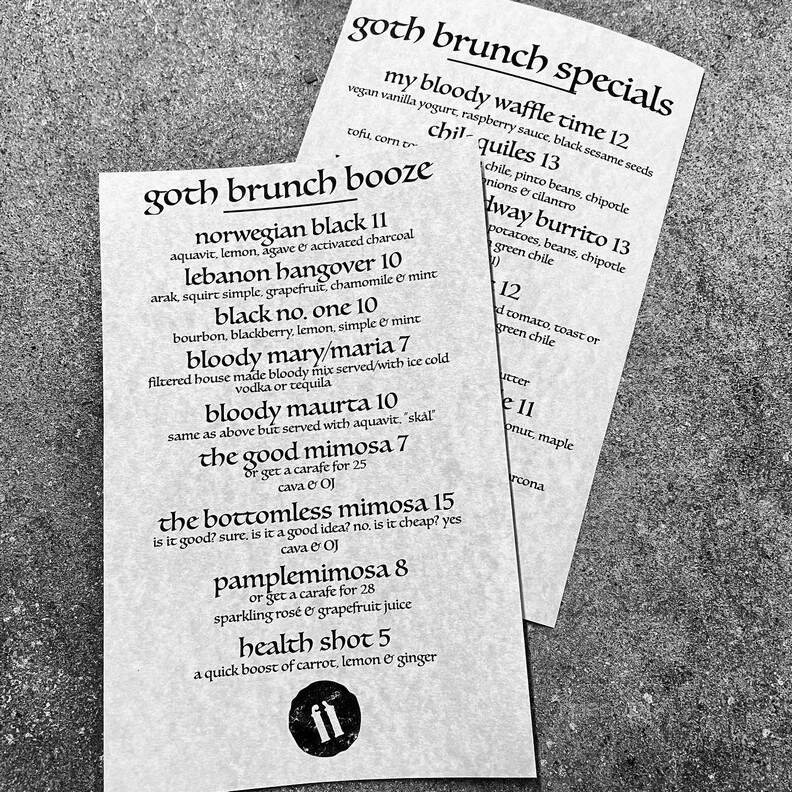 goth brunch booze
norwegian black 11
aquavit, lemon, agave & activated charcoal
lebanon hangover 10
arak, squirt simple, grapefruit, chamomile & mint
black no. one 10
bourbon, blackberry, lemon, simple & mint
bloody mary/maria 7
filtered house made bloody mix served/with ice cold
vodka or tequila
bloody maurta 10
same as above but served with aquavit, "skål"
the good mimosa 7
or get a carafe for 25
cava & OJ
the bottomless mimosa 15
is it good? sure. is it a good idea? no. is it cheap? yes
cava & OJ
pamplemimosa 8
or get a carafe for 28
sparkling rosé & grapefruit juice
health shot 5
a quick boost of carrot, lemon & ginger
goth brunch specials
my bloody waffle time 12
vegan vanilla yogurt, raspberry sauce, black sesame seeds
quiles 13
tofu, corn
chile, pinto beans, chipotle
onions & cilantro
burrito 13
potatoes, beans, chipotle
green chile
12
tomato, toast or
green chile
11
maple